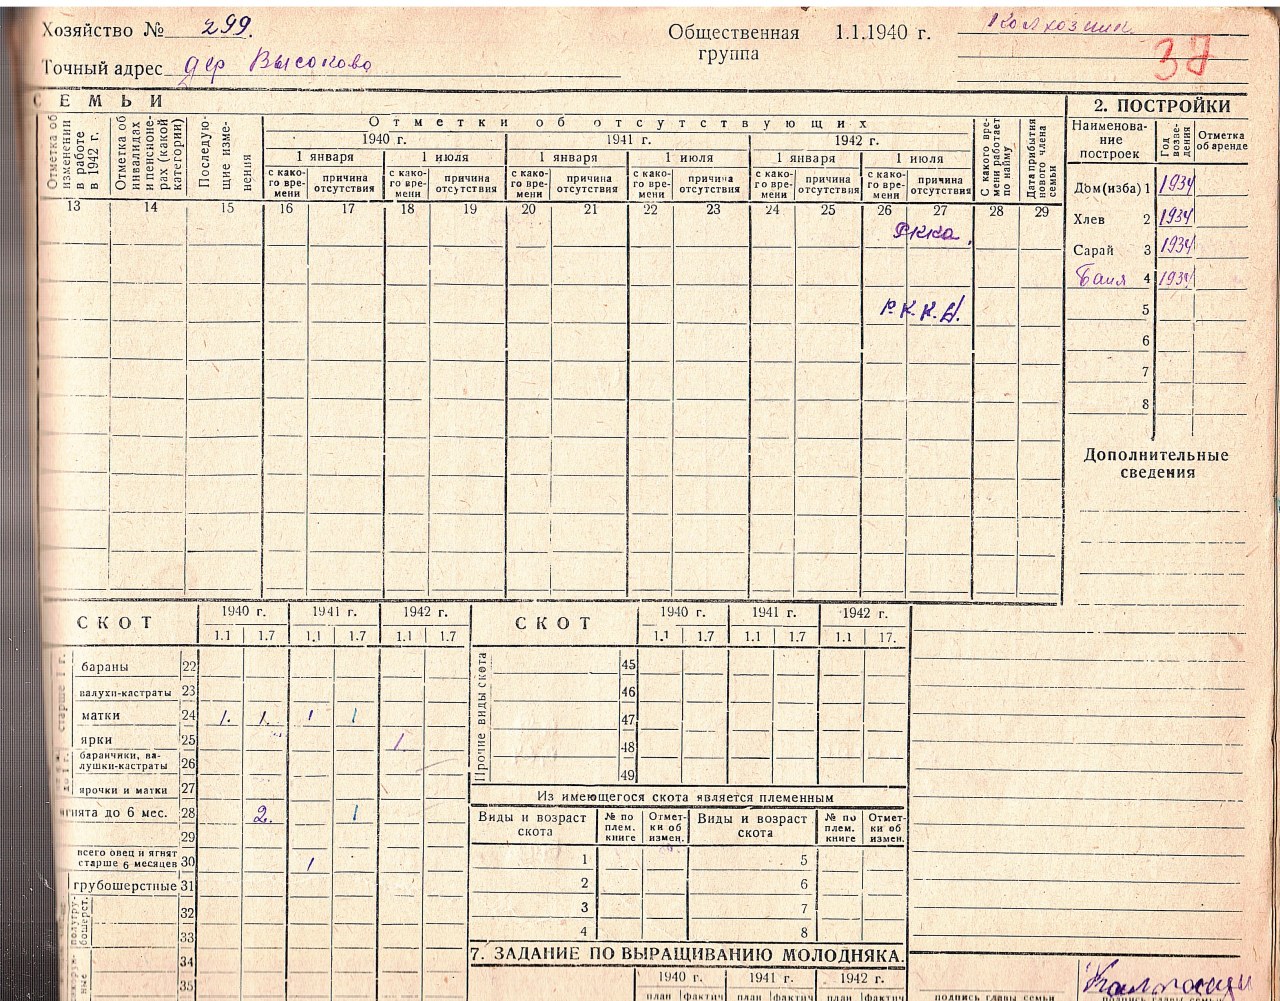 Хозяйство № 299.
Общественная группа 1.1.1940 г. Колхозник
37
Точный адрес дер Высоково
СЕМЬИ
2. ПОСТРОЙКИ
Отметка об изменении в работе в 1942 г.
Отметка об инвалидах и пенсионерах (какой категории)
Последующие изменения
Отметки об отсутствующих
1940 г. 1941 г. 1942 г.
1 января 1 июля 1 января 1 июля 1 января 1 июля
с како-го вре-мени причина отсутствия с како-го вре-мени причина отсутствия с како-го вре-мени причина отсутствия с како-го вре-мени причина отсутствия с како-го вре-мени причина отсутствия с како-го вре-мени причина отсутствия
С какого вре-мени работает по найму
Дата прибытия нового члена семьи
Наименова-ние построек
Год возве-дения
Отметка об аренде
13 14 15 16 17 18 19 20 21 22 23 24 25 26 27 28 29
Ркка.
Р.К.К.А.
Дом (изба) 1 1934
Хлев 2 1934
Сарай 3 1934
Баня 4 1934
5
6
7
8
Дополнительные сведения
СКОТ
1940 г. 1941 г. 1942 г.
1.1 1.7 1.1 1.7 1.1 1.7
старше 1 г.
бараны 22
валухи-кастраты 23
матки 24 1. 1. 1 1
ярки 25 1
до 1 г.
баранчики, ва-лушки-кастраты 26
ярочки и матки 27
ягнята до 6 мес. 28 2. 1
29
всего овец и ягнят старше 6 месяцев 30 1
грубошерстные 31
полугру-бошерст.
32
33
34
35
СКОТ
1940 г. 1941 г. 1942 г.
1.1 1.7 1.1 1.7 1.1 17.
Прочие виды скота
45
46
47
48
49
Из имеющегося скота является племенным
Виды и возраст скота № по плем. книге Отмет-ки об измен. Виды и возраст скота № по плем. книге Отмет-ки об измен.
1 5
2 6
3 7
4 8
7. ЗАДАНИЕ ПО ВЫРАЩИВАНИЮ МОЛОДНЯКА.
1940 г. 1941 г. 1942 г.
план фактич план фактич план фактич
подпись главы семьи